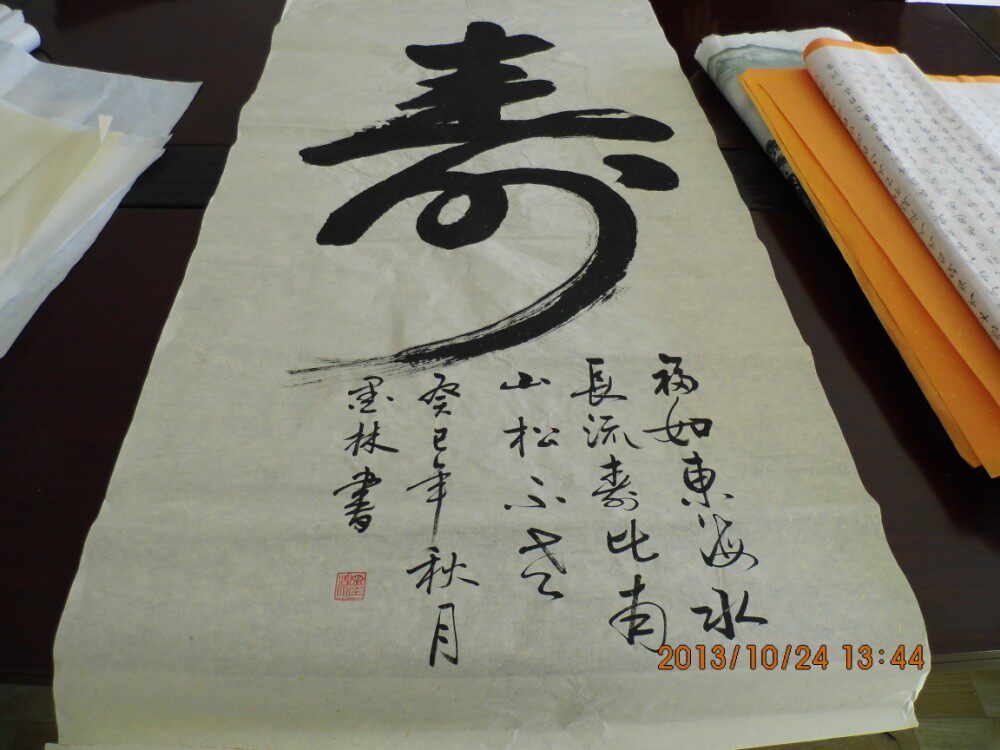 寿
福如東海水
長流壽比南
山松不老
癸巳年秋月
墨林書
墨林
2013/10/24 13:44